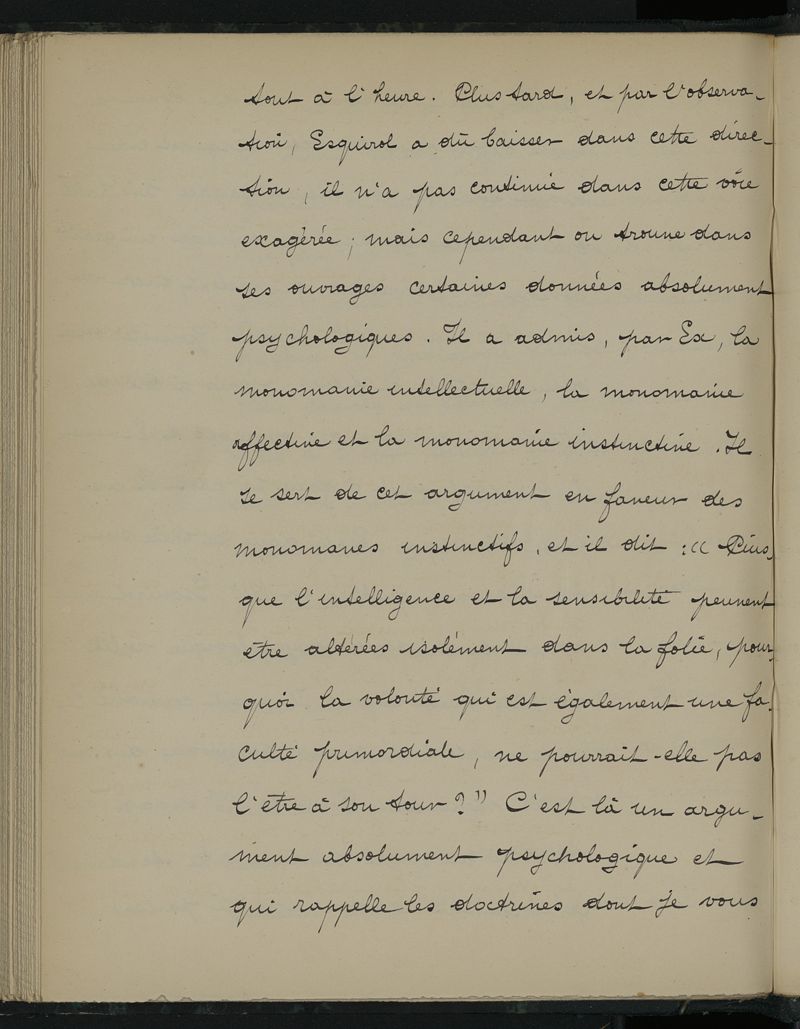 tout à l'heure. Plus tard, et par l'observa-
tion, Esquirol a dû baisser dans cette direc-
tion, il n'a pas continué dans cette voie
exagérée; mais cependant on trouve dans
ses ouvrages certaines données absolument
psychologiques. Il a admis, par Ex, la
monomanie intellectuelle, la monomanie
affective et la monomanie instinctive. Il
se sert de cet argument en faveur des
monomanes instinctifs, et il dit: « Puis-
que l'intelligence et la sensibilité peuvent
être altérées isolément dans la folie, pour-
quoi la volonté qui est également une fa-
culté primordiale, ne pourrait-elle pas
l'être à son tour? » C'est là un argu-
ment absolument psychologique et
qui rappelle les doctrines dont je vous